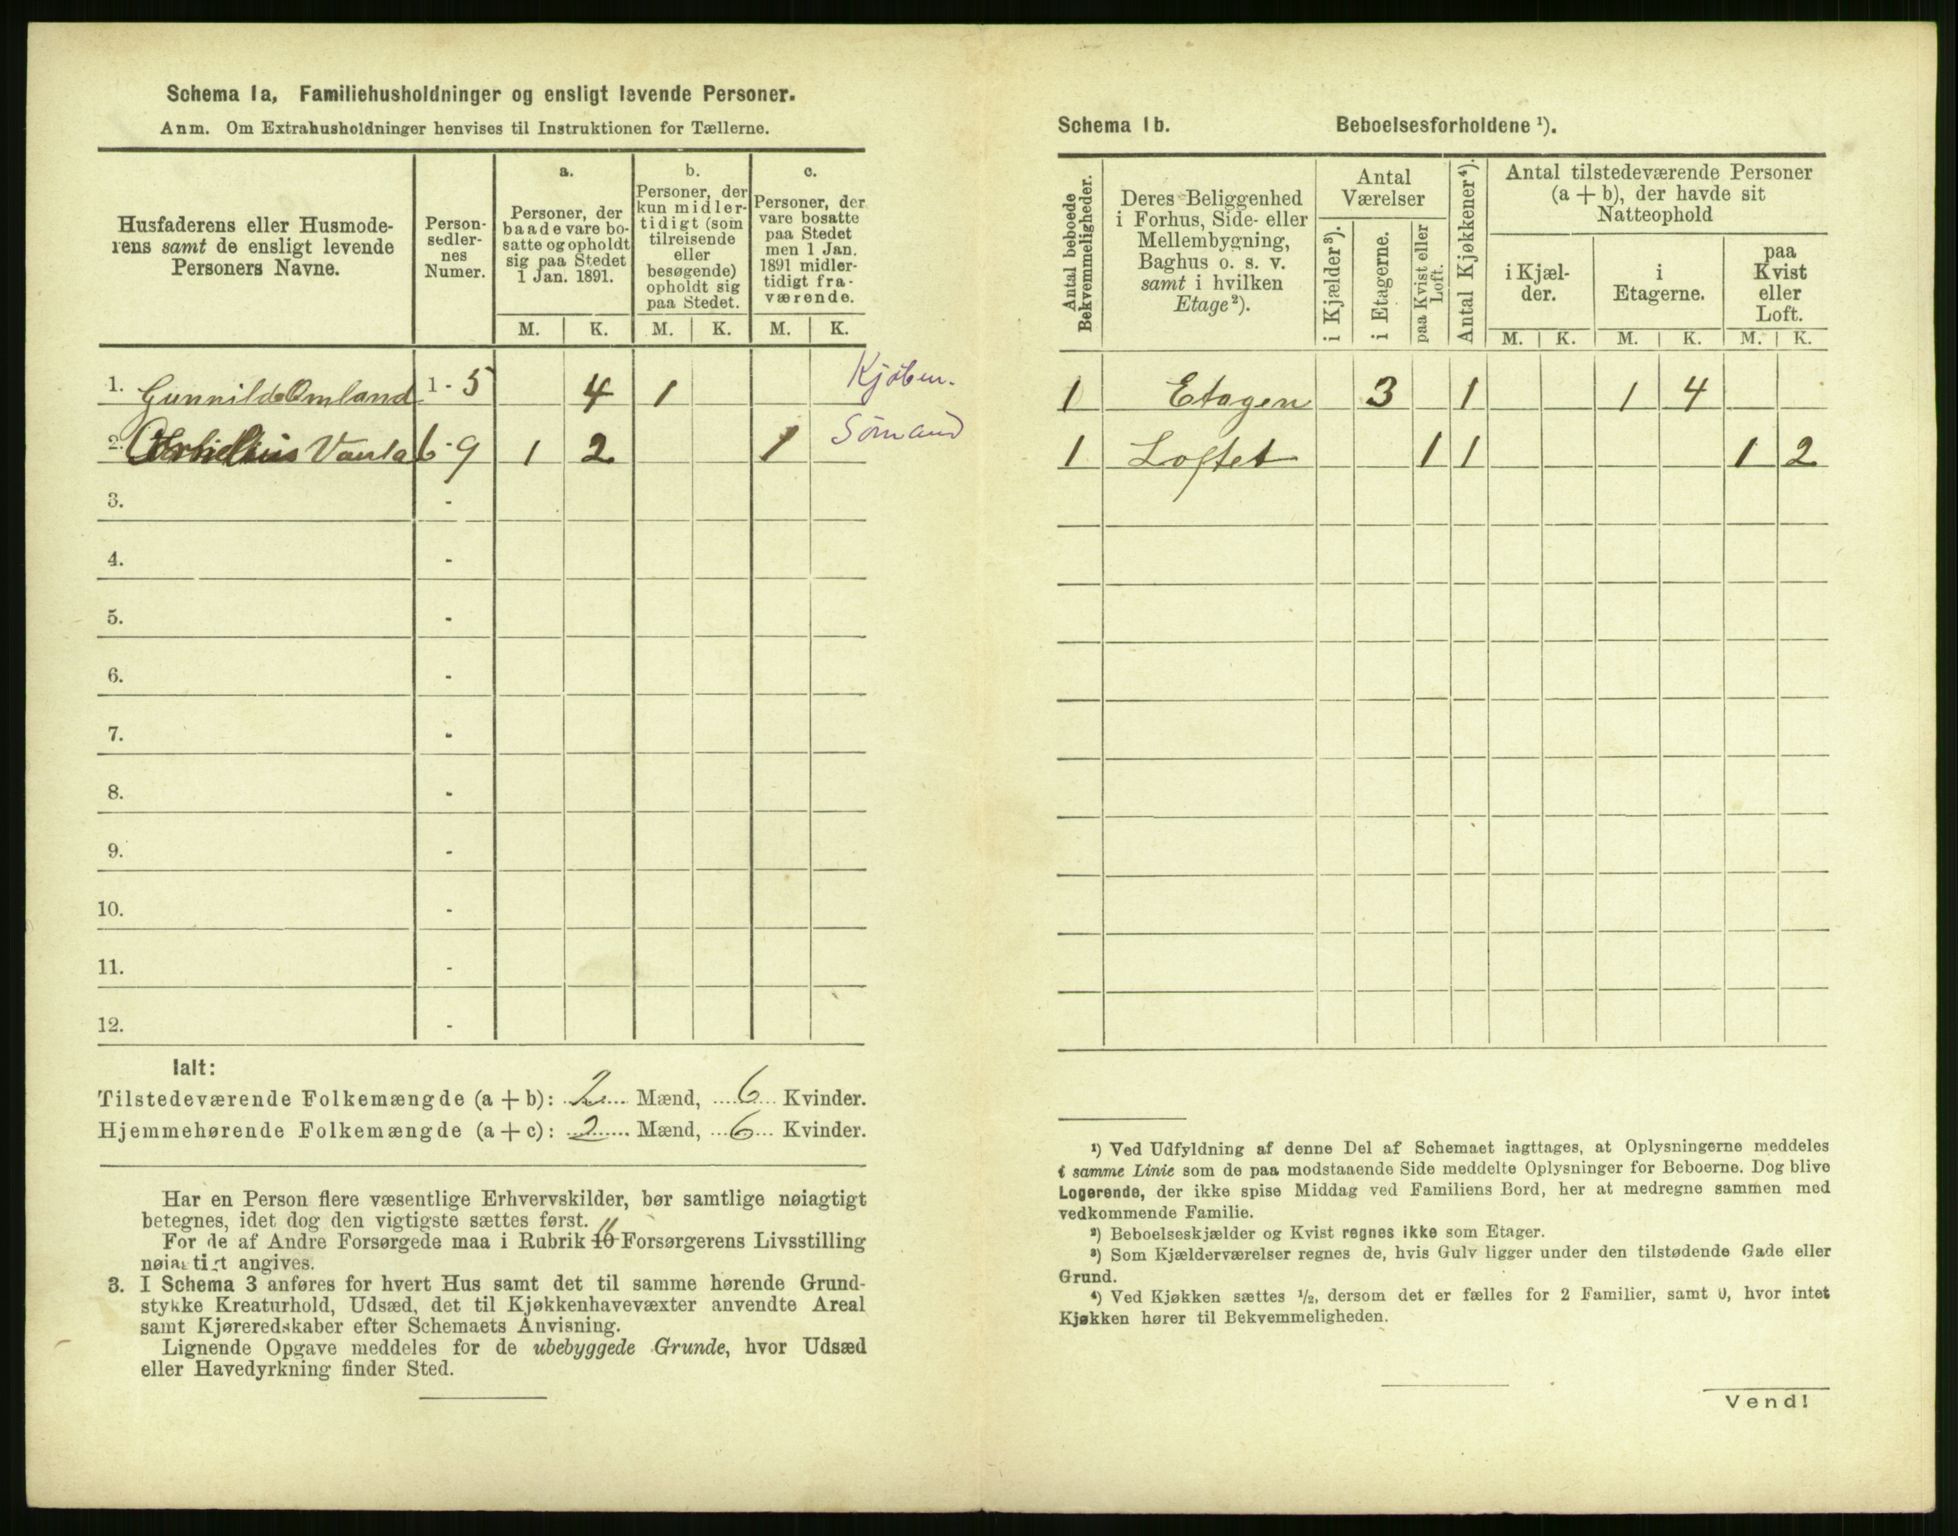 Schema Ia, Familiehusholdninger og ensligt levende Personer.
Anm. Om Extrahusholdninger henvises til Instruktionen for Tællerne.
Husfaderens eller Husmode-
rens samt de ensligt levende
Personers Navne.
Person-
sedler-
nes
Numer.
a.
Personer, der
baade vare bo-
satte og opholdt
sig paa Stedet
1 Jan. 1891.
b.
Personer, der
kun midler-
tidigt (som
tilreisende
eller
besøgende)
opholdt sig
paa Stedet.
c.
Personer, der
vare bosatte
paa Stedet
men 1 Jan.
1891 midler-
tidigt fra-
værende.
M. K. M. K. M. K.
1. Gunnild Omland 1 - 5 4 1 Kjøbm.
2. Vanta 6 - 9 1 2 1 Sømand
3. -
4. -
5. -
6. -
7. -
8. -
9. -
10. -
11. -
12. -
Ialt:
Tilstedeværende Folkemængde (a + b): 2 Mænd, 6 Kvinder.
Hjemmehørende Folkemængde (a + c): 2 Mænd, 6 Kvinder.
Har en Person flere væsentlige Erhvervskilder, bør samtlige nøiagtigt
betegnes, idet dog den vigtigste sættes først.
11
For de af Andre Forsørgede maa i Rubrik 10 Forsørgerens Livsstilling
nøiagtigt angives.
3. I Schema 3 anføres for hvert Hus samt det til samme hørende Grund-
stykke Kreaturhold, Udsæd, det til Kjøkkenhavevæxter anvendte Areal
samt Kjøreredskaber efter Schemaets Anvisning.
Lignende Opgave meddeles for de ubebyggede Grunde, hvor Udsæd
eller Havedyrkning finder Sted.
Schema Ib. Beboelsesforholdene ¹).
Antal beboede
Bekvemmeligheder.
Deres Beliggenhed
i Forhus, Side- eller
Mellembygning,
Baghus o. s. v.
samt i hvilken
Etage²).
Antal
Værelser
i Kjælder³).
i Etagerne.
paa Kvist eller
Loft.
Antal Kjøkkener⁴).
Antal tilstedeværende Personer
(a + b), der havde sit
Natteophold
i Kjæl-
der.
i
Etagerne.
paa
Kvist
eller
Loft.
M. K. M. K. M. K.
1 Etagen 3 1 1 4
1 Loftet 1 1 1 2
¹) Ved Udfyldning af denne Del af Schemaet iagttages, at Oplysningerne meddeles
i samme Linie som de paa modstaaende Side meddelte Oplysninger for Beboerne. Dog blive
Logerende, der ikke spise Middag ved Familiens Bord, her at medregne sammen med
vedkommende Familie.
²) Beboelseskjælder og Kvist regnes ikke som Etager.
³) Som Kjælderværelser regnes de, hvis Gulv ligger under den tilstødende Gade eller
Grund.
⁴) Ved Kjøkken sættes ½, dersom det er fælles for 2 Familier, samt 0, hvor intet
Kjøkken hører til Bekvemmeligheden.
Vend!